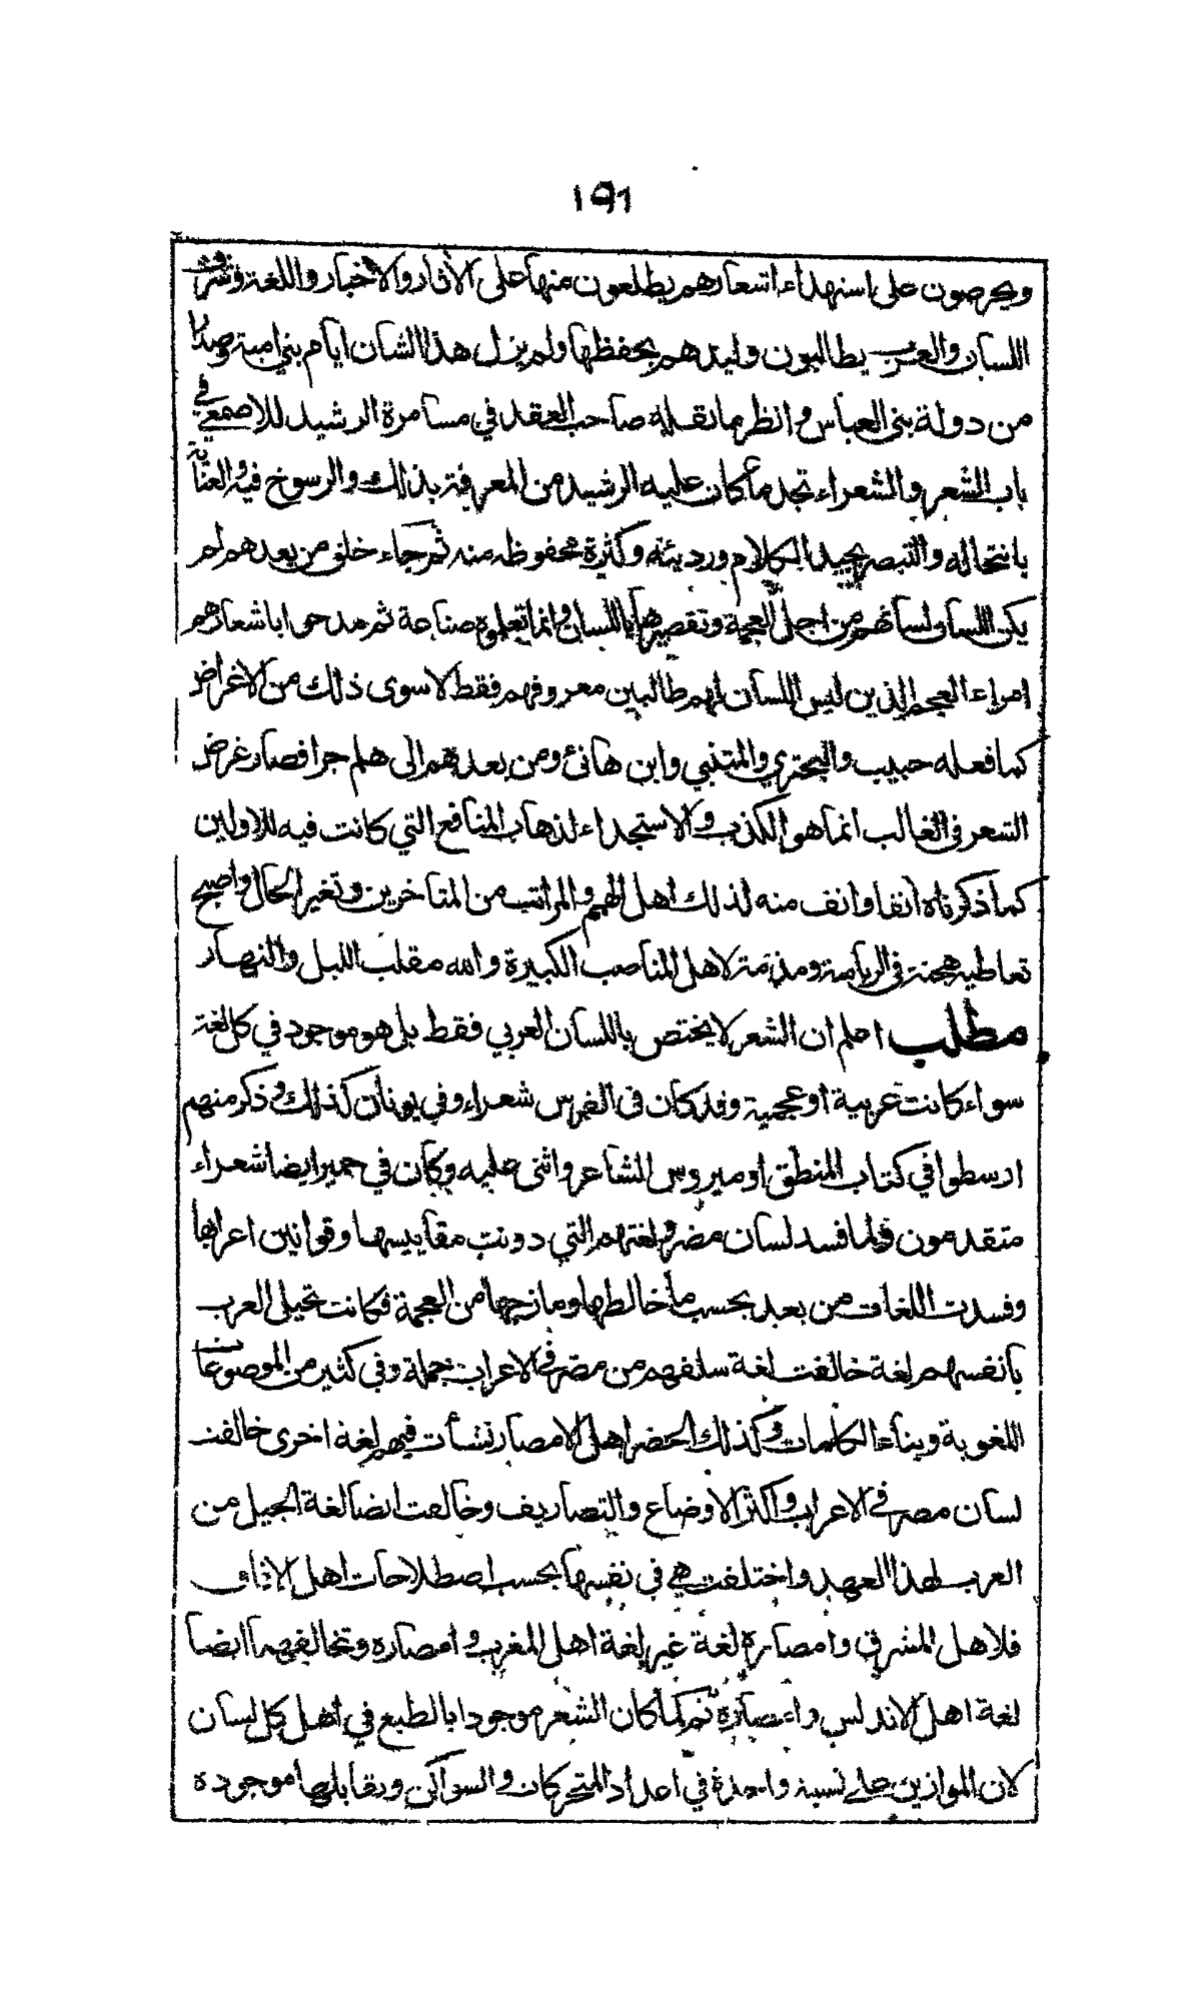 ١٩٦
ويحرصون على استهداء اشعارهم يطلعون منها على الاثار والاخبار واللغة وشرف
اللسان والعرب يطالبون وليدهم بحفظها ولم يزل هذا الشان ايام بني امية وصدرا
من دولة بني العباس وانظر ما نقله صاحب العقد في مسامرة الرشيد للاصمعي في
باب الشعر والشعراء تجد ما كان عليه الرشيد من المعرفة بذلك والرسوخ فيه والعناية
بانتحاله والتبصر بجيد الكلام ورديئه وكثرة محفوظه منه ثم جاء خلق من بعدهم لم
يكن اللسان لسانهم من اجل العجمة وتقصيرها باللسان وانما تعلموه صناعة ثم مدحوا باشعارهم
امراء العجم الذين ليس اللسان لهم طالبين معروفهم فقط لا سوى ذلك من الاغراض
كما فعله حبيب والبحتري والمتنبي وابن هانئ ومن بعدهم الى هلم جرا فصار غرض
الشعر في الغالب انما هو الكذب والاستجداء لذهاب المنافع التي كانت فيه للاولين
كما ذكرناه آنفا وانف منه لذلك اهل الهمم والمراتب من المتاخرين وتغير الحال واصبح
تعاطيه هجنة في الرياسة ومذمة لاهل المناصب الكبيرة والله مقلب الليل والنهار
مطلب اعلم ان الشعر لا يختص باللسان العربي فقط بل هو موجود في كل لغة
سواء كانت عربية او عجمية وقد كان في الفرس شعراء وفي يونان كذلك وذكر منهم
ارسطوا في كتاب المنطق اوميروس الشاعر واثنى عليه وكان في حمير ايضا شعراء
متقدمون ولما فسد لسان مضر ولغتهم التي دونت مقاييسها وقوانين اعرابها
وفسدت اللغات من بعد بحسب ما خالطها ومازجها من العجمة فكانت تحيل العرب
بأنفسهم لغة خالفت لغة سلفهم من مضر في الاعراب جملة وفي كثير من الموضوعات
اللغوية وبناء الكلمات وكذلك الحضر اهل الامصار نشأت فيهم لغة اخرى خالفت
لسان مضر في الاعراب واكثر الاوضاع والتصاريف وخالفت ايضا لغة الجيل من
العرب لهذا العهد واختلفت هي في نفسها بحسب اصطلاحات اهل الافاق
فلاهل المشرق وامصاره لغة غير لغة اهل المغرب وامصاره وتخالفهما ايضا
لغة اهل الاندلس وامصاره ثم كما كان الشعر موجودا بالطبع في اهل كل لسان
لان الموازين على نسبة واحدة في اعداد المتحركات والسواكن وتقابلها موجودة